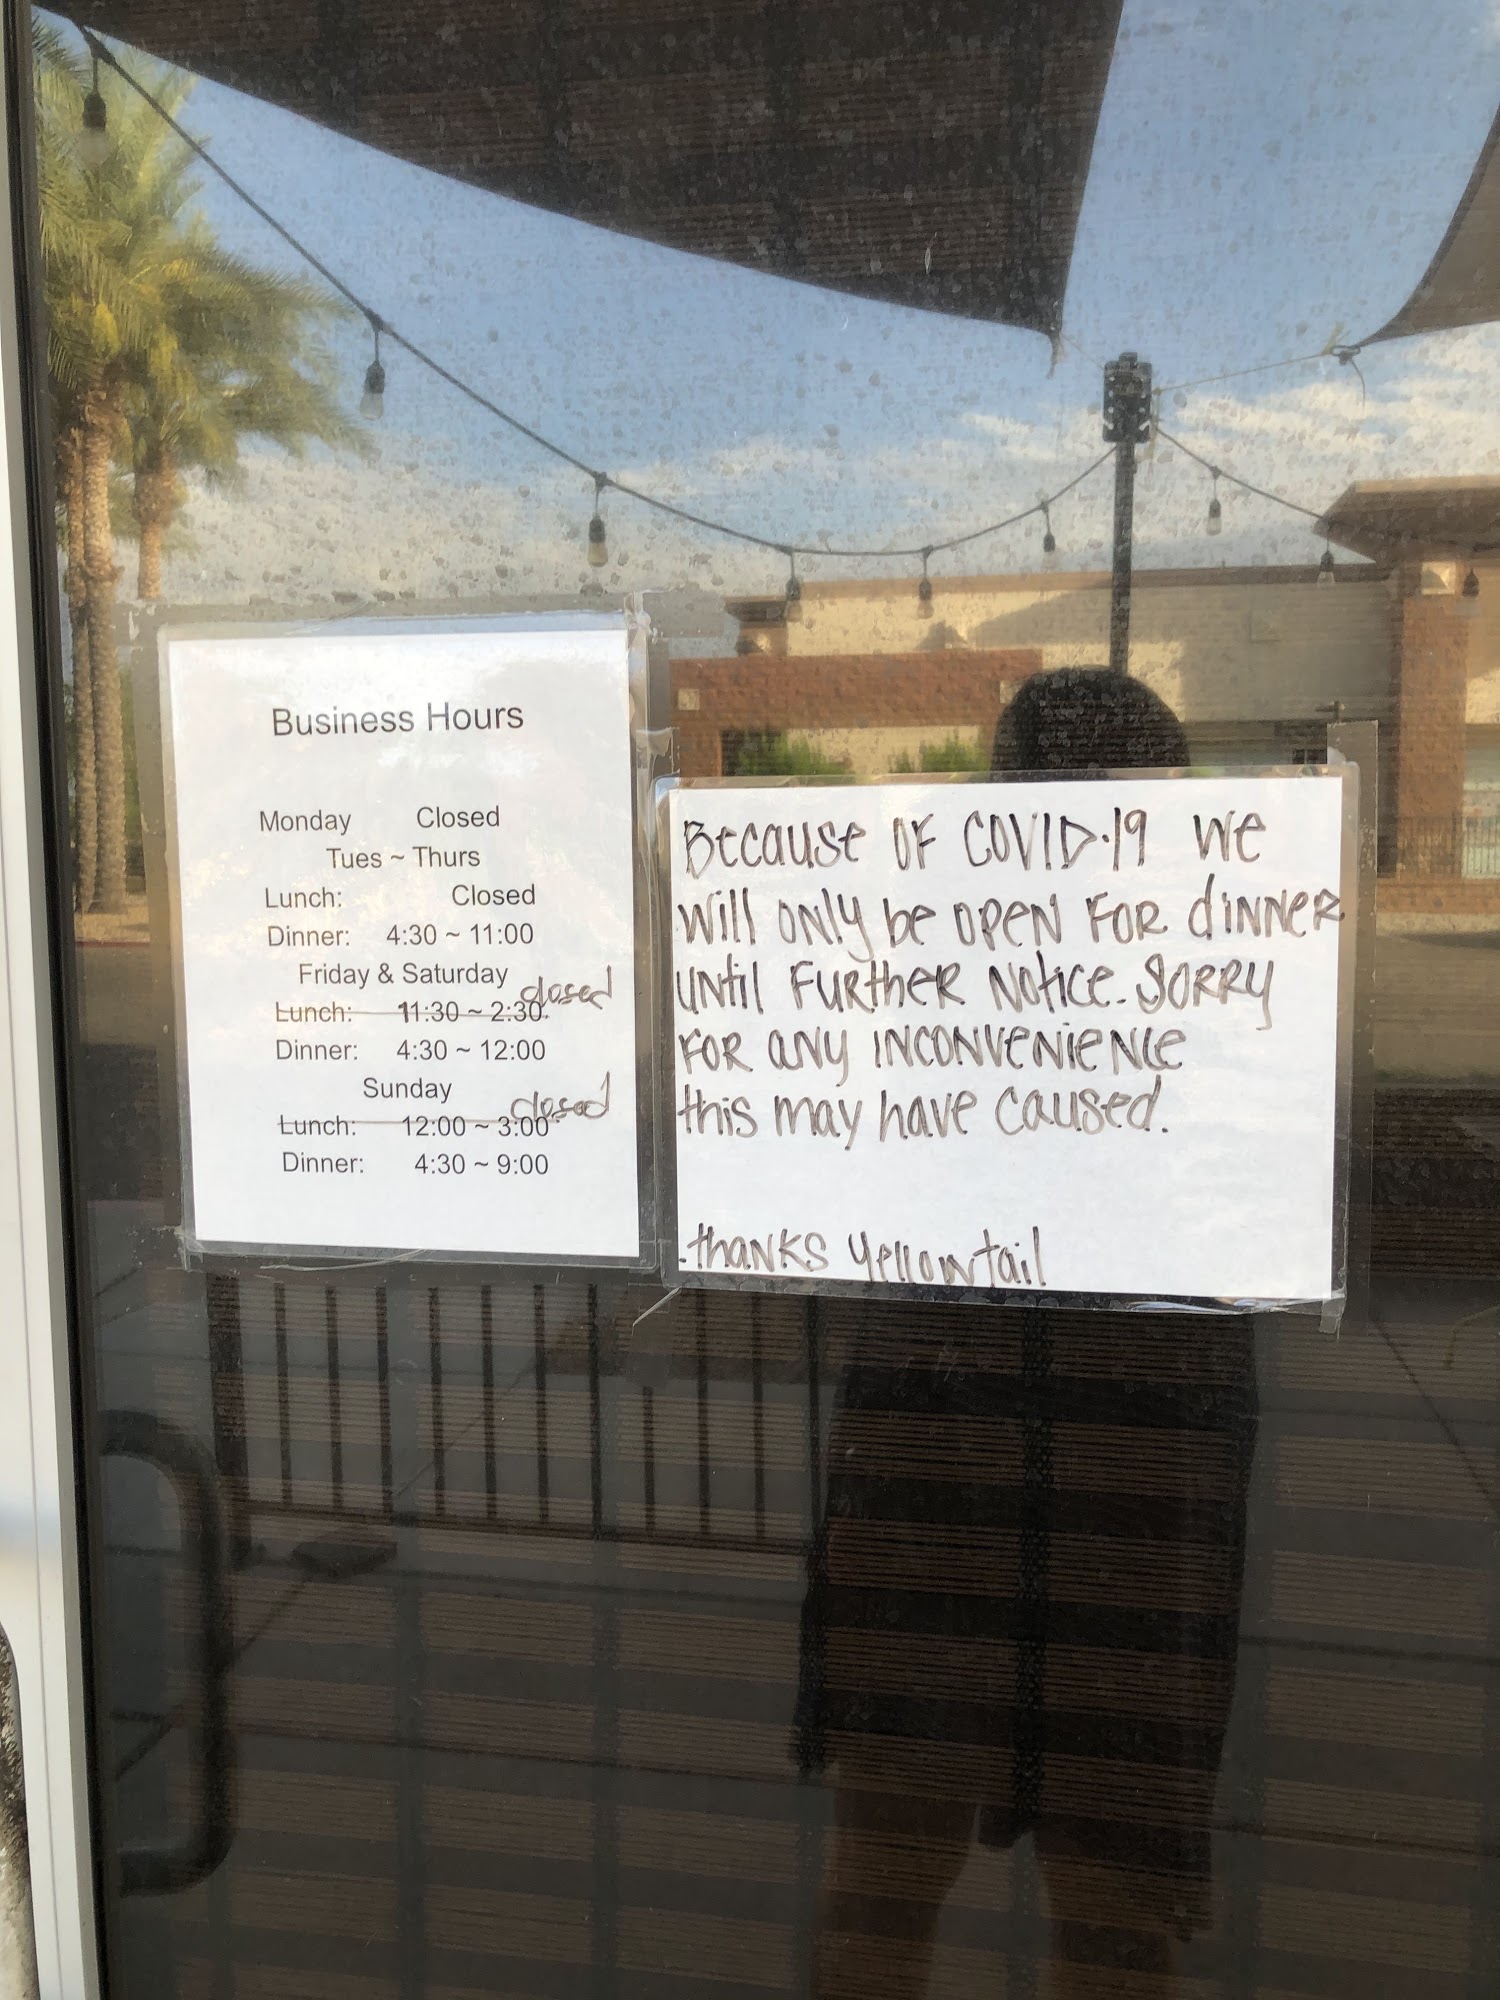 Business Hours
Monday Closed
Tues ~ Thurs
Lunch: Closed
Dinner: 4:30 ~ 11:00
Friday & Saturday
closed
Lunch: 11:30 ~ 2:30
Dinner: 4:30 ~ 12:00
Sunday
closed
Lunch: 12:00 ~ 3:00
Dinner: 4:30 ~ 9:00
Because OF COVID-19 we
will only be open For dinner
until Further Notice. Sorry
For any inconvenience
this may have caused.
-thanks Yellowtail